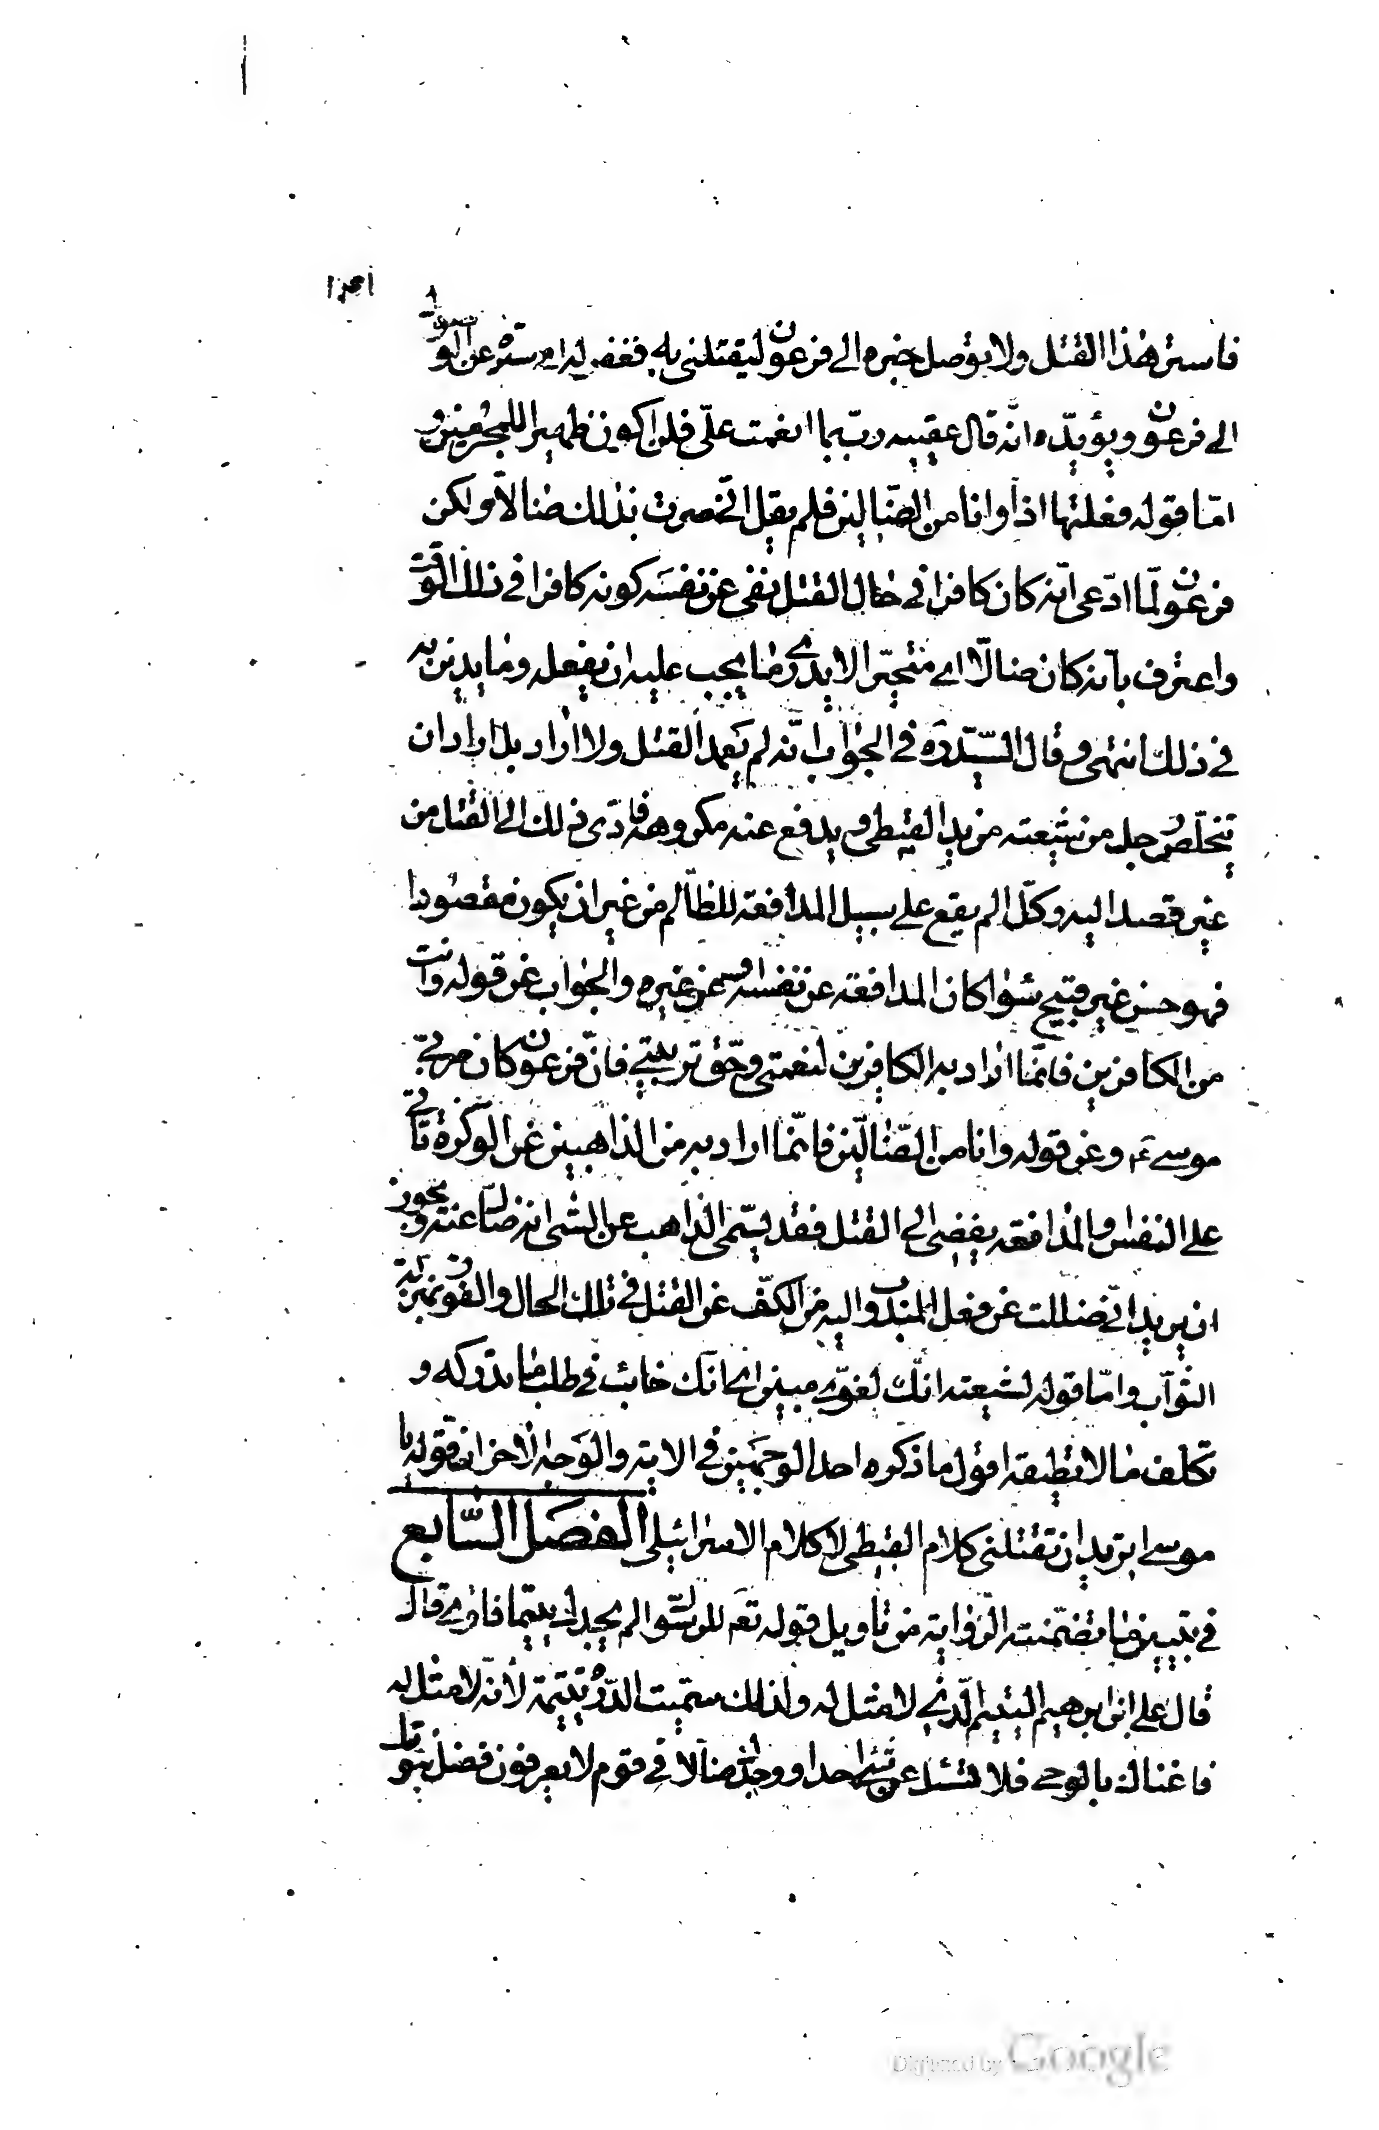 فاستر هذا القتل ولا يوصل خبره الى فرعون ليقتلنى به فغفر له اى ستر عن الوصول
الى فرعون ويؤيّده انّه قال عقيبه ربّ بما انعمت علىّ فلن اكون ظهيرا للمجرمين و
امّا قوله فعلتها اذا وانا من الضّالين فلم يقل انّى صرت بذلك ضالاّ ولكن
فرعون لمّا ادّعى انّه كان كافرا فى حال القتل نفى عن نفسه كونه كافرا فى ذلك الوقت
واعترف بانّه كان ضالّا اى متحيّرا لا يدرى ما يجب عليه ان يفعله وما يدين به
فى ذلك انتهى وقال السيّد ره فى الجواب انّه لم يعمد القتل ولا اراد بل اراد ان
يتخلّص رجل من شيعته من يد القبطى ويدفع عنه مكروهه فادّى ذلك الى القتل من
غير قصد اليه وكلّ الم يقع على سبيل المدافعة للظّالم من غير ان يكون مقصودا
فهو حسن غير قبيح سواء كان المدافعة عن نفسه او عن غيره والجواب عن قوله وانت
من الكافرين فانّما اراد به الكافرين لنعمتى وحقّ تربيتى فانّ فرعون كان مربّى
موسى ع وعن قوله وانا من الضّالّين فانّما اراد به من الذاهبين عن الوكزة تاتى
على النفس والمدافعة يفضى الى القتل فقد يسمّى الذاهب عن الشى انه ضالّ عنه ويجوز
ان يريد انّى ضللت عن فعل المندوب اليه من الكفّ عن القتل فى تلك الحال والفوز بمنزلة
الثواب وامّا قوله لشيعته انّك لغوىّ مبين اى انّك خائب فى طلب ما تدركه و
تكلّف ما لا تطيقه اقول ما ذكره احد الوجهين فى الاية والوجه الاخر ان قوله يا
موسى اتريد ان تقتلنى كلام القبطى لا كلام الاسرائيلى الفصل السّابع
فى تبيين ما تضمّنته الرّواية من تاويل قوله تع للرّسول الم يجدك يتيما فاوى قال
قال على ابن ابرهيم اليتيم الّذى لا مثل له ولذلك سمّيت الدّرّة يتيمة لانّه لا مثل له
فاغناك بالوحى فلا تسئل عن شئ احدا ووجدك ضالاّ فى قوم لا يعرفون فضل نبوّتك
Digitized by Google